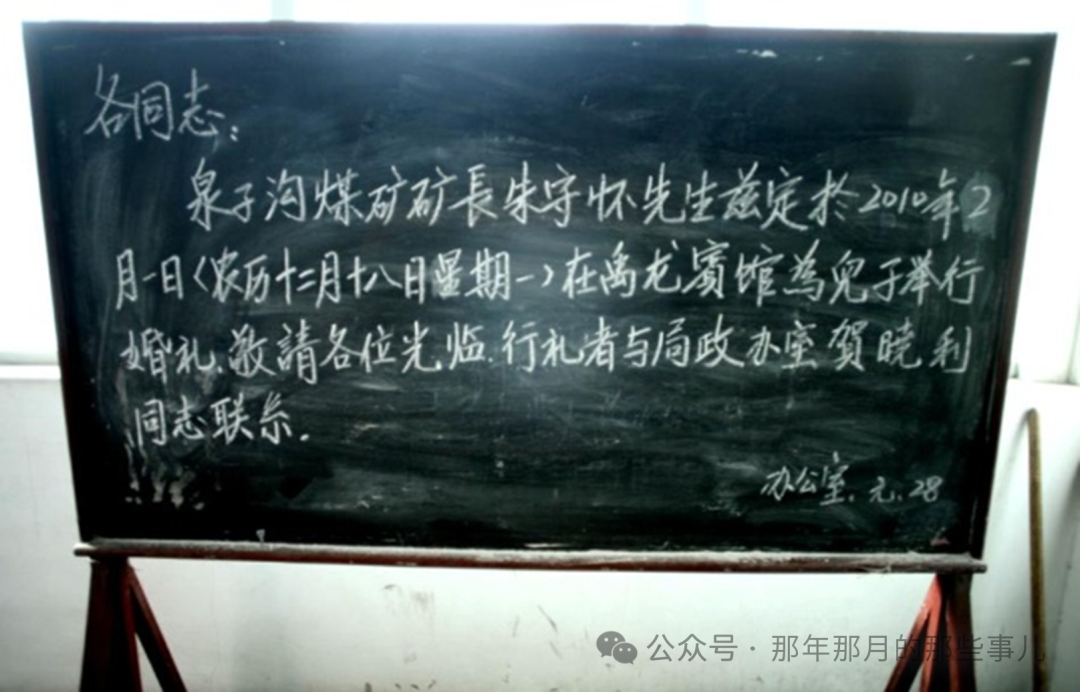 各同志:
泉子沟煤矿矿長朱守怀先生兹定於2010年2
月一日<农历十二月十八日星期一>在禹龙賓馆為兒子举行
婚礼、敬請各位光临.行礼者与局政办室贺晓利
同志联系.
办公室.元.28
公众号·那年那月的那些事儿